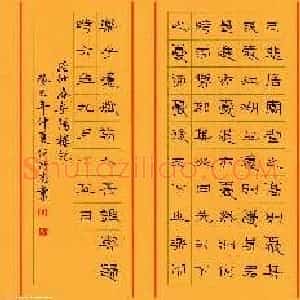 己悲居廟堂之高則憂其
民處江湖之遠則憂其君
是進亦憂退亦憂然則何
時而樂耶其必曰先天下
之憂而憂後天下之樂而
樂乎噫微斯人吾誰與歸
時六年九月十五日
范仲淹岳陽樓記
年仲夏
Shufaziliao.com